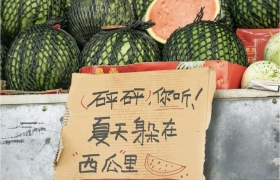 （砰砰）你听！
夏天躲在
“西瓜里